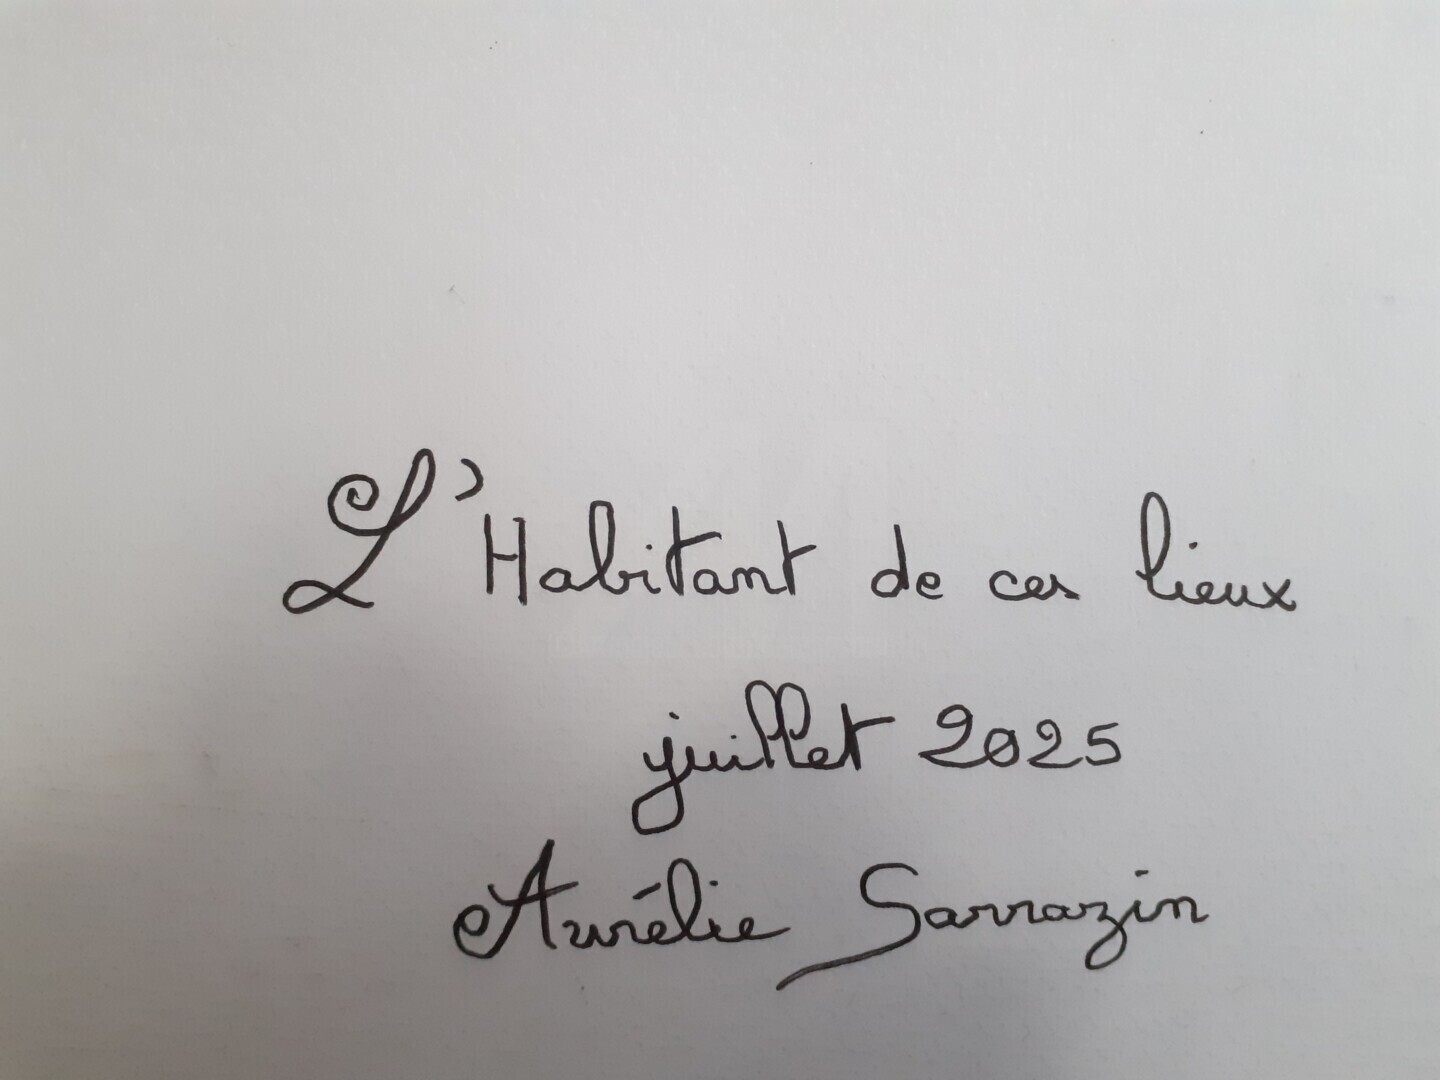 L'Habitant de ces lieux
juillet 2025
Aurélie Sarrazin